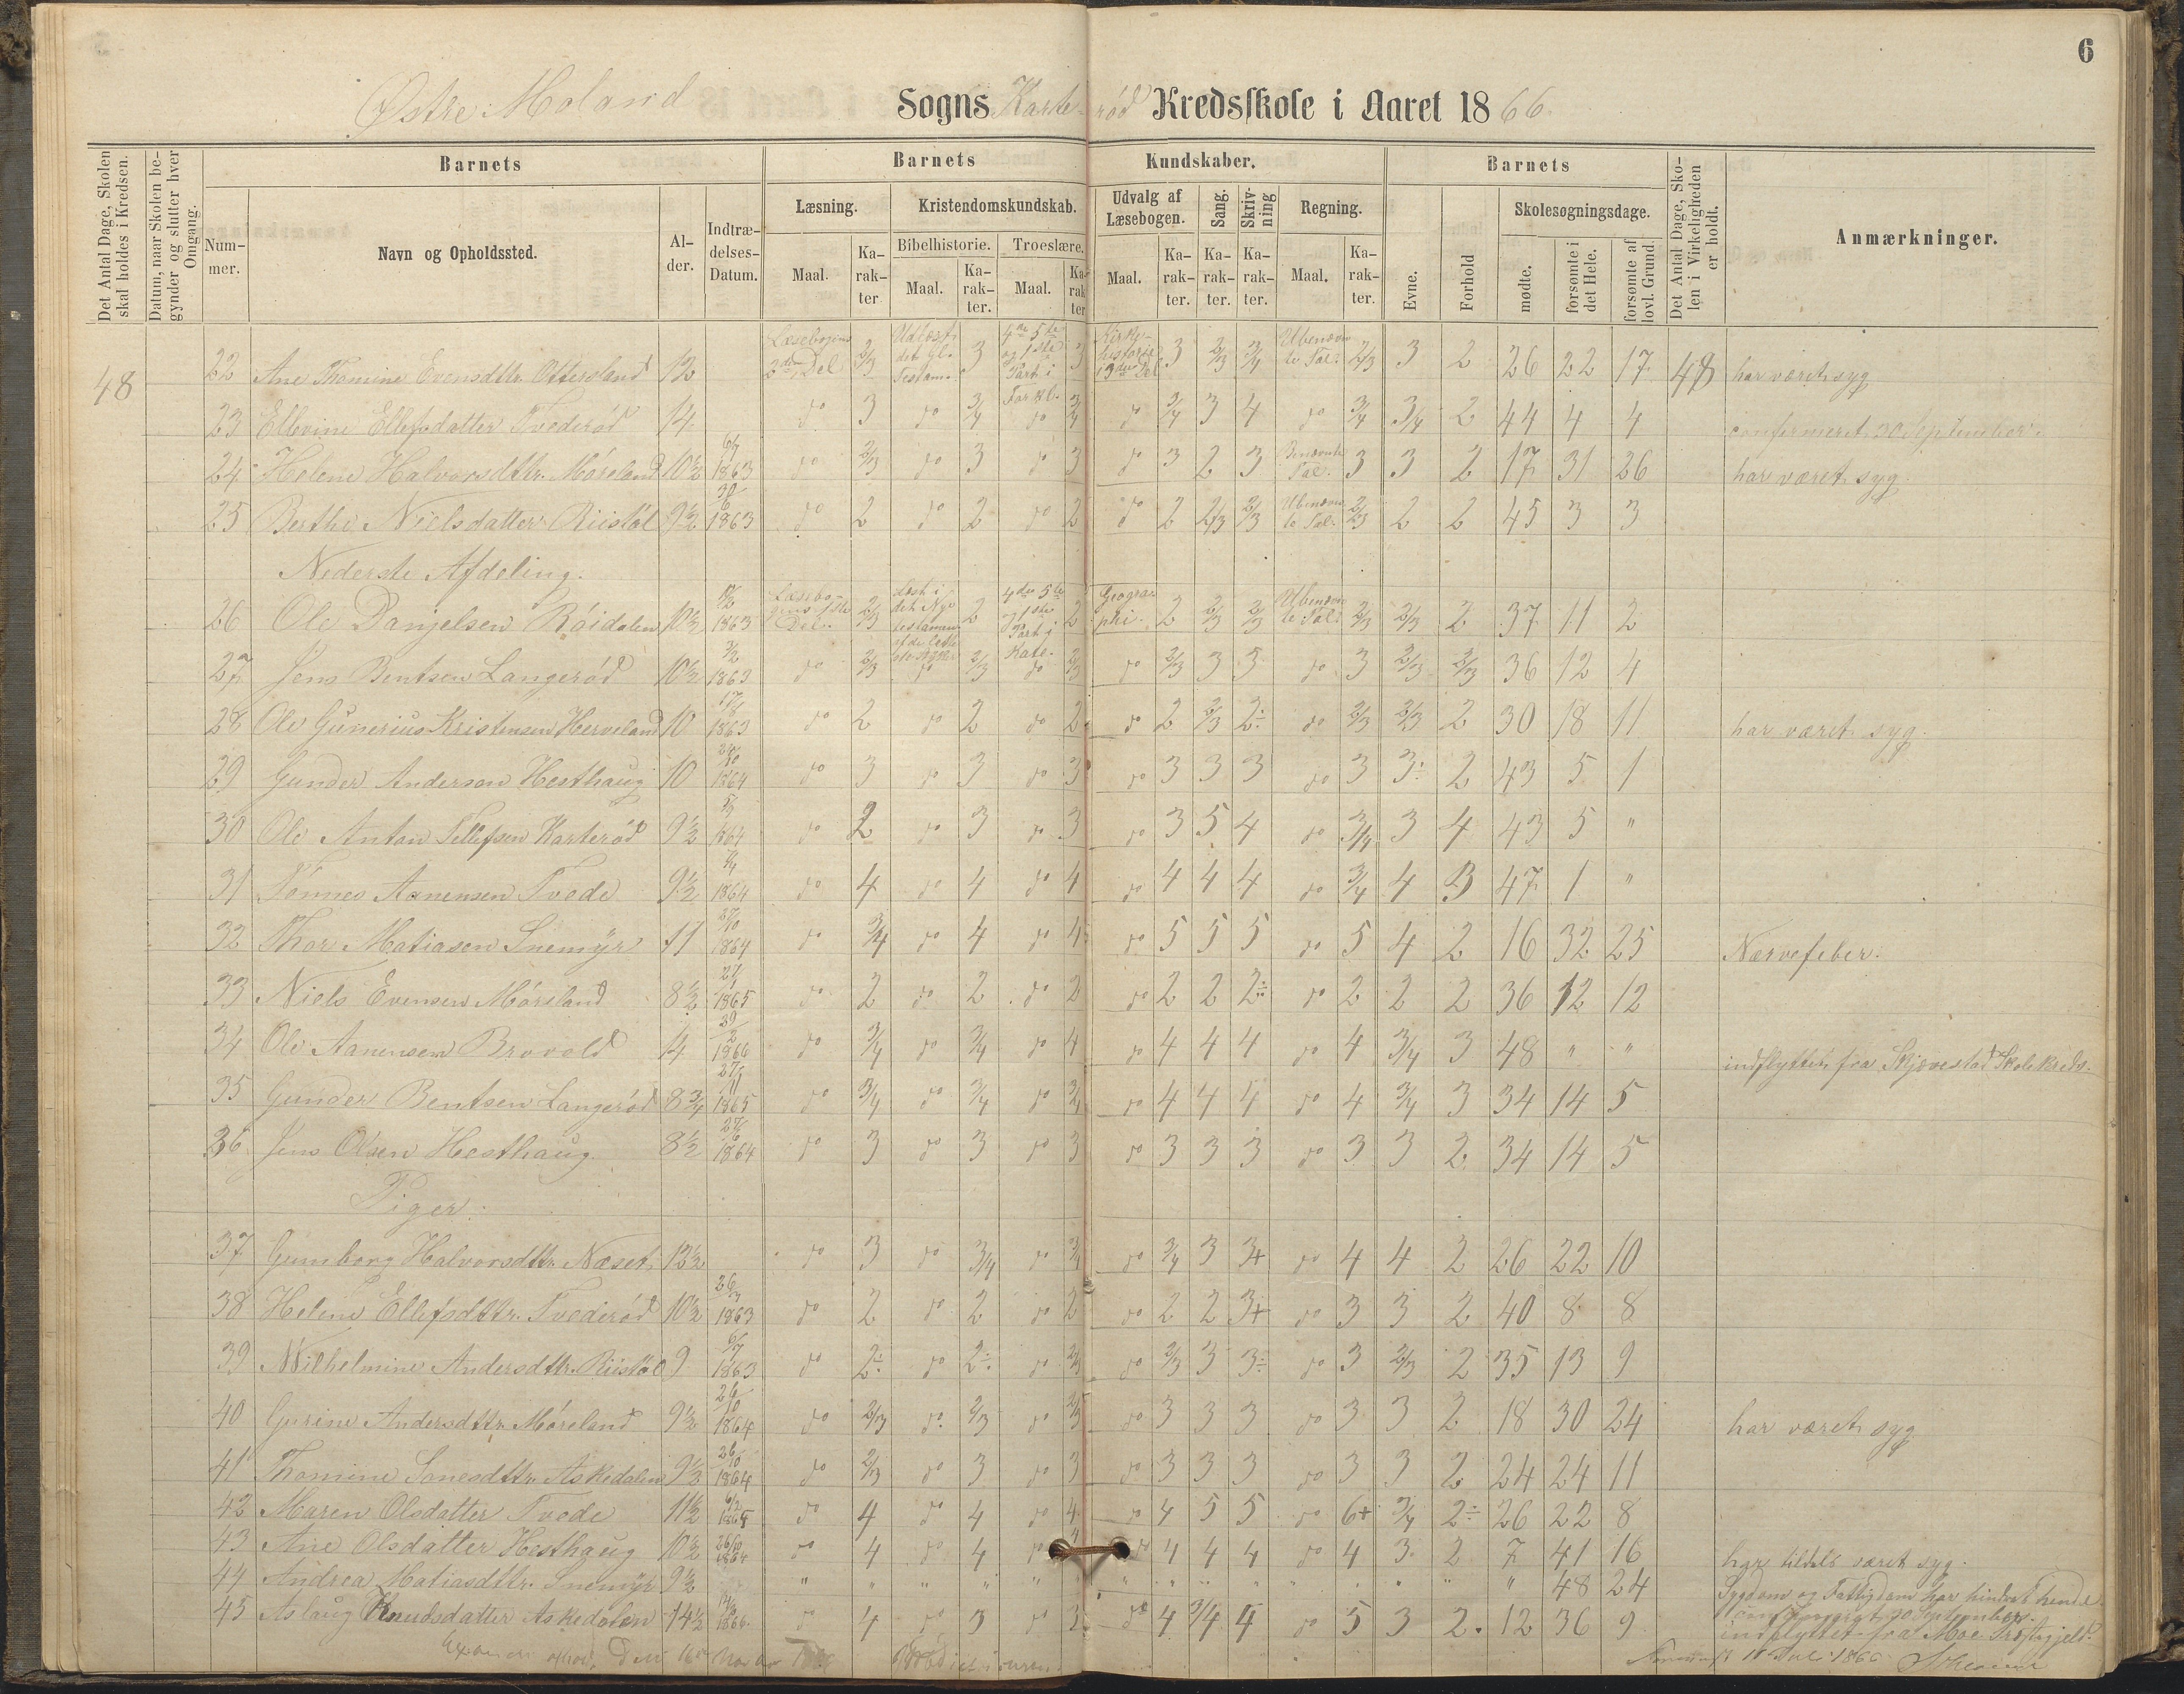 6
Østre Moland Sogns Karterød Kredsskole i Aaret 1866.
Det Antal Dage, Skolen skal holdes i Kredsen.
Datum, naar Skolen begynder og slutter hver Omgang.
Barnets
Barnets
Kundskaber.
Barnets
Det Antal Dage, Skolen i Virkeligheden er holdt.
Anmærkninger.
Nummer.
Navn og Opholdssted.
Alder.
Indtrædelses-Datum.
Læsning.
Kristendomskundskab.
Udvalg af Læsebogen.
Sang.
Skrivning
Regning.
Evne.
Forhold
Skolesøgningsdage.
Bibelhistorie.
Troeslære.
Maal.
Karakter
Maal.
Karakter.
Maal.
Karakter
Maal.
Karakter.
Karakter.
Karakter.
Maal.
Karakter.
mødte.
forsømte i det Hele.
forsømte af lovl. Grund.
48 22 Ane Thomine Evensdttr. Ottersland 12 Læsebogens 2den Del 2/3 3 3 3 2/3 3/4 Ubenævnte Tal. 2/3 3 2 26 22 17 48 har været syg
23 Ellevine Ellefsdatter Tvederød 14 do 3 do 3/4 do 3/4 do 3/4 3 4 do 3/4 3/4 2 44 4 4 confirmeret 30 September.
24 Helene Halvorsdttr. Møreland 10½ 6/7 1863 do 2/3 do 3 do 3 do 3 2 3 Benævnte Tal. 3 3 2 17 31 26 har været syg.
25 Berthe Nielsdatter Riistøl 9½ 30/6 1863 do 2 do 2 do 2 do 2 2/3 2/3 Ubenævnte Tal. 2/3 2 2 45 3 3
Nederste Afdeling.
26 Ole Danjelsen Røidalen 10½ 1863 Læsebogens 1ste Del. 2/3 2 2 Geographi. 2 2/3 2/3 Ubenævnte Tal. 2/3 2/3 2 37 11 2
27 Jens Bentsen Langerød 10½ 3/2 1863 do 2/3 do 2/3 do 2/3 do 2/3 3 3 do 3 2/3 2/3 36 12 4
28 Ole Gunerius Kristensen Herveland 10 1863 do 2 do 2 do 2 do 2 2/3 2÷ do 2/3 2/3 2 30 18 11 har været syg.
29 Gunder Andersen Hesthaug 10 1864 do 3 do 3 do 3 do 3 3 3 do 3 3÷ 2 43 5 1
30 Ole Anton Tellefsen Karterød 9½ 1864 do 2 do 3 do 3 do 3 5 4 do 3/4 3 4 43 5 "
31 Tønnes Aanensen Tvede 9½ 1864 do 4 do 4 do 4 do 4 4 4 do 3/4 4 3 47 1 "
32 Thor Matiasen Snemyr 11 1864 do 3/4 do 4 do 4 do 5 5 5 do 5 4 2 16 32 25 Nervefeber.
33 Niels Evensen Mørland 8½ 1865 do 2 do 2 do 2 do 2 2 2÷ do 2 2 2 36 12 12
34 Ole Aanensen Brovold 14 1866 do 3/4 do 3/4 do 4 do 4 4 4 do 4 3/4 3 48 " " indflyttet fra Skjævestad Skolekreds.
35 Gunder Bentsen Langerød 8¾ 1865 do 3/4 do 3/4 do 3/4 do 4 4 4 do 4 3/4 3 34 14 5
36 Jens Olsen Hesthaug 8½ 1864 do 3 do 3 do 3 do 3 3 3 do 3 3 2 34 14 5
Piger.
37 Gunborg Halvorsdttr. Næset 13½ do 3 do 3/4 do 3/4 do 3/4 3 3+ do 4 4 2 26 22 10
38 Helene Ellefsdttr. Tvederød 10½ 26/3 1863 do 2 do 2 do 2 do 2 2 3+ do 3 3 2 40 8 8
39 Wilhelmine Andersdttr. Riistøl 9 6/7 1863 do 2÷ do 2÷ do 2/3 do 2/3 3 3÷ do 3 2/3 2 35 13 9
40 Gurine Andersdttr. Møreland 9½ 26/10 1864 do 2/3 do. 2/3 do 2/3 do 3 3 3 do 3 3 2 18 30 24 har været syg
41 Thomine Sonesdttr. Askedalen 9½ 26/10 1864 do 2/3 do 3 do 3 do 3 3 3 do 3 3 2 24 24 11
42 Maren Olsdatter Tvede 11½ do 4 do 4 do 4 do 4 5 5 do 6+ 3/4 2÷ 26 22 8
43 Ane Olsdatter Hesthaug 10½ 26/10 1864 do 4 do 4 do 4 do 4 4 4 do 4 3 2 7 41 16 har tildels været syg.
44 Andrea Matiasdttr. Snemyr 9½ " " " " " " " " " " " " " " " 48 24 Sygdom og Fattigdom har hindret hende
45 Aslaug Knudsdatter Askedalen 14½ 1866 do 4 do 3 do 3 do 4 3/4 4 do 5 3 2. 12 36 9 confirmeret 30 September.
indflyttet fra Moe Præstegjeld.